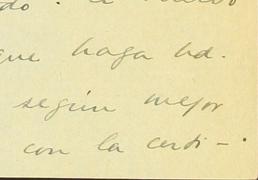 que haga Ud.
según mejor
con la certi-